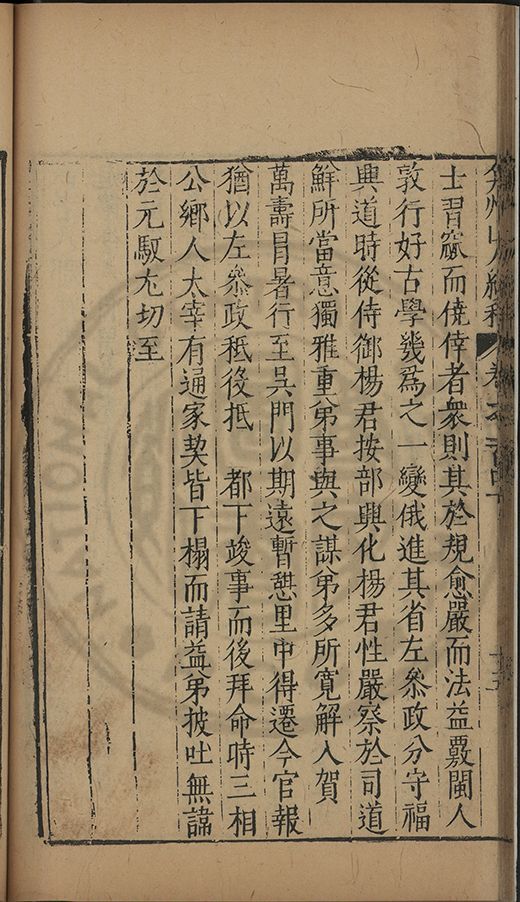 弇州山人續稿 卷之一百四十
士習窳而僥倖者衆則其於規愈嚴而法益覈閩人
敦行好古學幾爲之一變俄進其省左叅政分守福
興道時從侍御楊君按部興化楊君性嚴察於司道
鮮所當意獨雅重弟事與之謀弟多所寬解入賀
萬壽冒暑行至吳門以期遠暫憇里中得遷今官報
猶以左叅政秪役抵　都下竣事而後拜命時三相
公鄉人太宰有通家契皆下榻而請益弟披吐無諱
於元馭尤切至